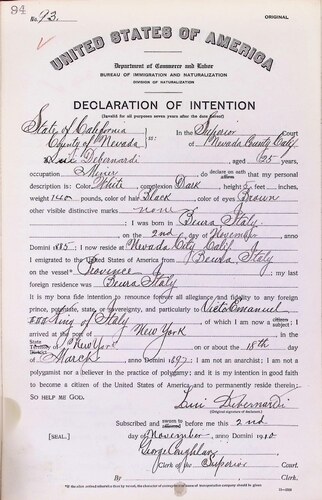 94
No. 93.
ORIGINAL
UNITED STATES OF AMERICA
Department of Commerce and Labor
BUREAU OF IMMIGRATION AND NATURALIZATION
DIVISION OF NATURALIZATION
DECLARATION OF INTENTION
(Invalid for all purposes seven years after the date hereof)
State of California
County of Nevada ss: In the Superior Court
of Nevada County Calif
I, Luii Debernardi, aged 25 years,
occupation Miner, do declare on oath affirm that my personal
description is: Color White, complexion Dark, height 5 feet inches,
weight 140 pounds, color of hair Black, color of eyes Brown
other visible distinctive marks none
I was born in Beura Italy
on the 2nd day of November, anno
Domini 1885; I now reside at Nevada City Calif
I emigrated to the United States of America from Beura, Italy
on the vessel Province; my last
foreign residence was Beura Italy
It is my bona fide intention to renounce forever all allegiance and fidelity to any foreign
prince, potentate, state, or sovereignty, and particularly to Victo Emanuel
III King of Italy, of which I am now a citizen subject; I
arrived at the port of New York, in the
State Territory District of New York on or about the 18th day
of March, anno Domini 1892; I am not an anarchist; I am not a
polygamist nor a believer in the practice of polygamy; and it is my intention in good faith
to become a citizen of the United States of America and to permanently reside therein:
SO HELP ME GOD.
Luii Debernardi
(Original signature of declarant.)
Subscribed and sworn to affirmed before me this 2nd
[SEAL.] day of November, anno Domini 1910
George Coughlan
Clerk of the Superior Court.
By , Clerk.